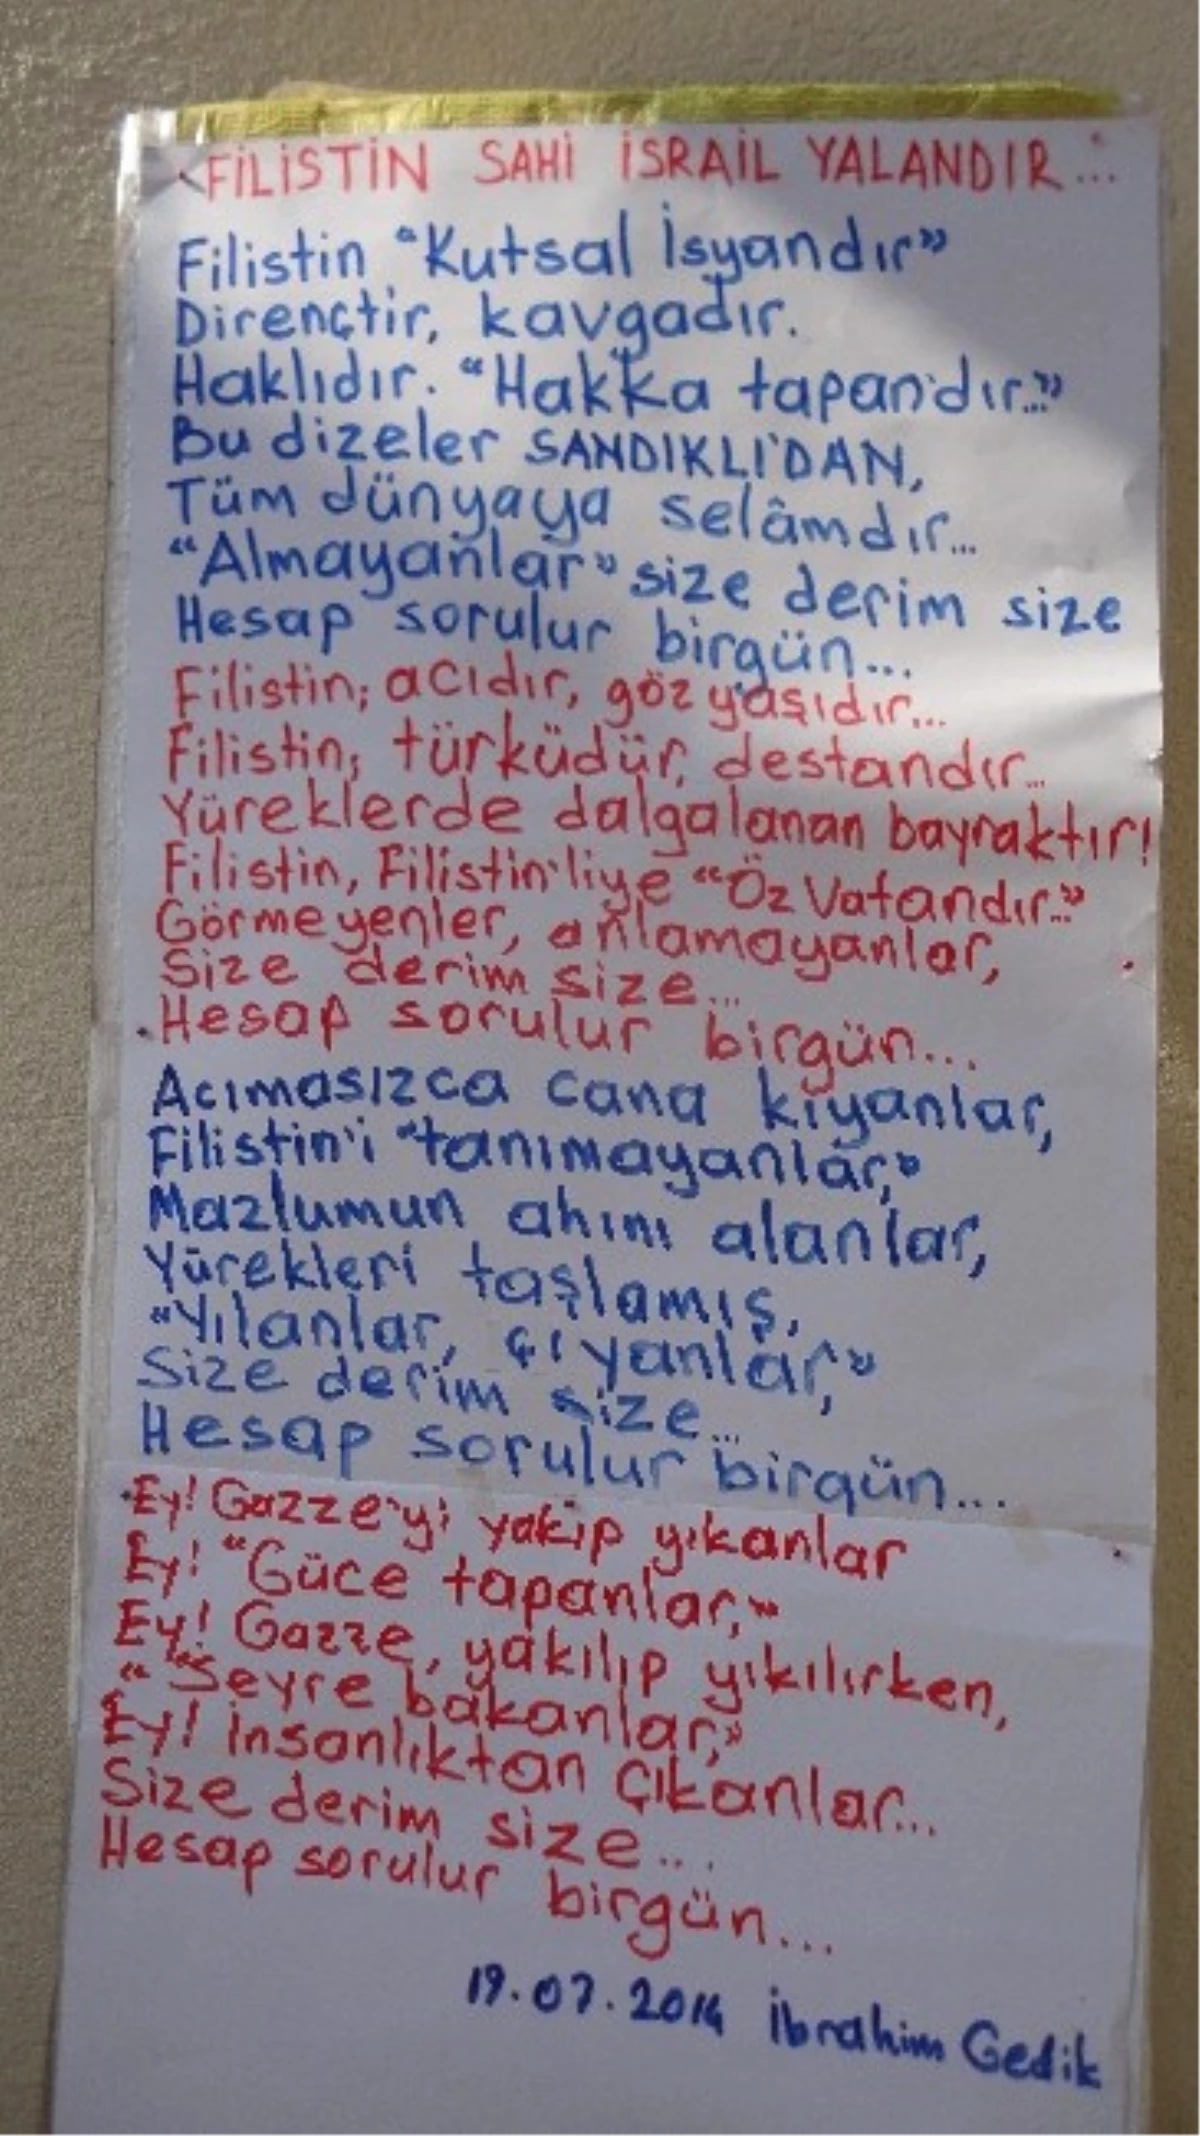 FİLİSTİN SAHİ İSRAİL YALANDIR...
Filistin "Kutsal İsyandır"
Dirençtir, kavgadır.
Haklıdır. "Hakka tapandır..."
Bu dizeler SANDIKLI'DAN,
Tüm dünyaya selâmdır...
"Almayanlar" size derim size
Hesap sorulur birgün...
Filistin; acıdır, göz yaşıdır...
Filistin; türküdür, destandır...
Yüreklerde dalgalanan bayraktır!
Filistin, Filistin'liye "Öz Vatandır..."
Görmeyenler, anlamayanlar,
Size derim size...
Hesap sorulur birgün...
Acımasızca cana kıyanlar,
Filistin'i "tanımayanlar,"
Mazlumun ahını alanlar,
Yürekleri taşlamış,
"Yılanlar, çıyanlar,"
Size derim size...
Hesap sorulur birgün...
Ey! Gazze'yi yakıp yıkanlar
Ey! "Güce tapanlar,"
Ey! Gazze, yakılıp yıkılırken,
"Seyre bakanlar,"
Ey! İnsanlıktan çıkanlar...
Size derim size...
Hesap sorulur birgün...
19.07.2014 İbrahim Gedik